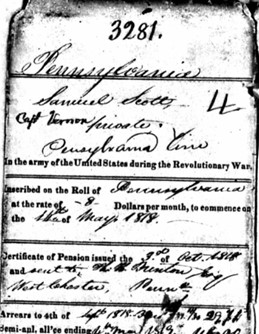 3281.
Pennsylvania
Samuel Scott
4
Capt Vernon private.
Pensylvania line
In the army of the United States during the Revolutionary War,
Inscribed on the Roll of Pennsylvania
at the rate of 8 Dollars per month, to commence on
the 18th of May 1818.
Certificate of Pension issued the 9th of Oct. 1818
and sent to
West Chester, Penna
Arrears to 4th of Sept 1818
Semi-anl. all'ce ending 4th Mar